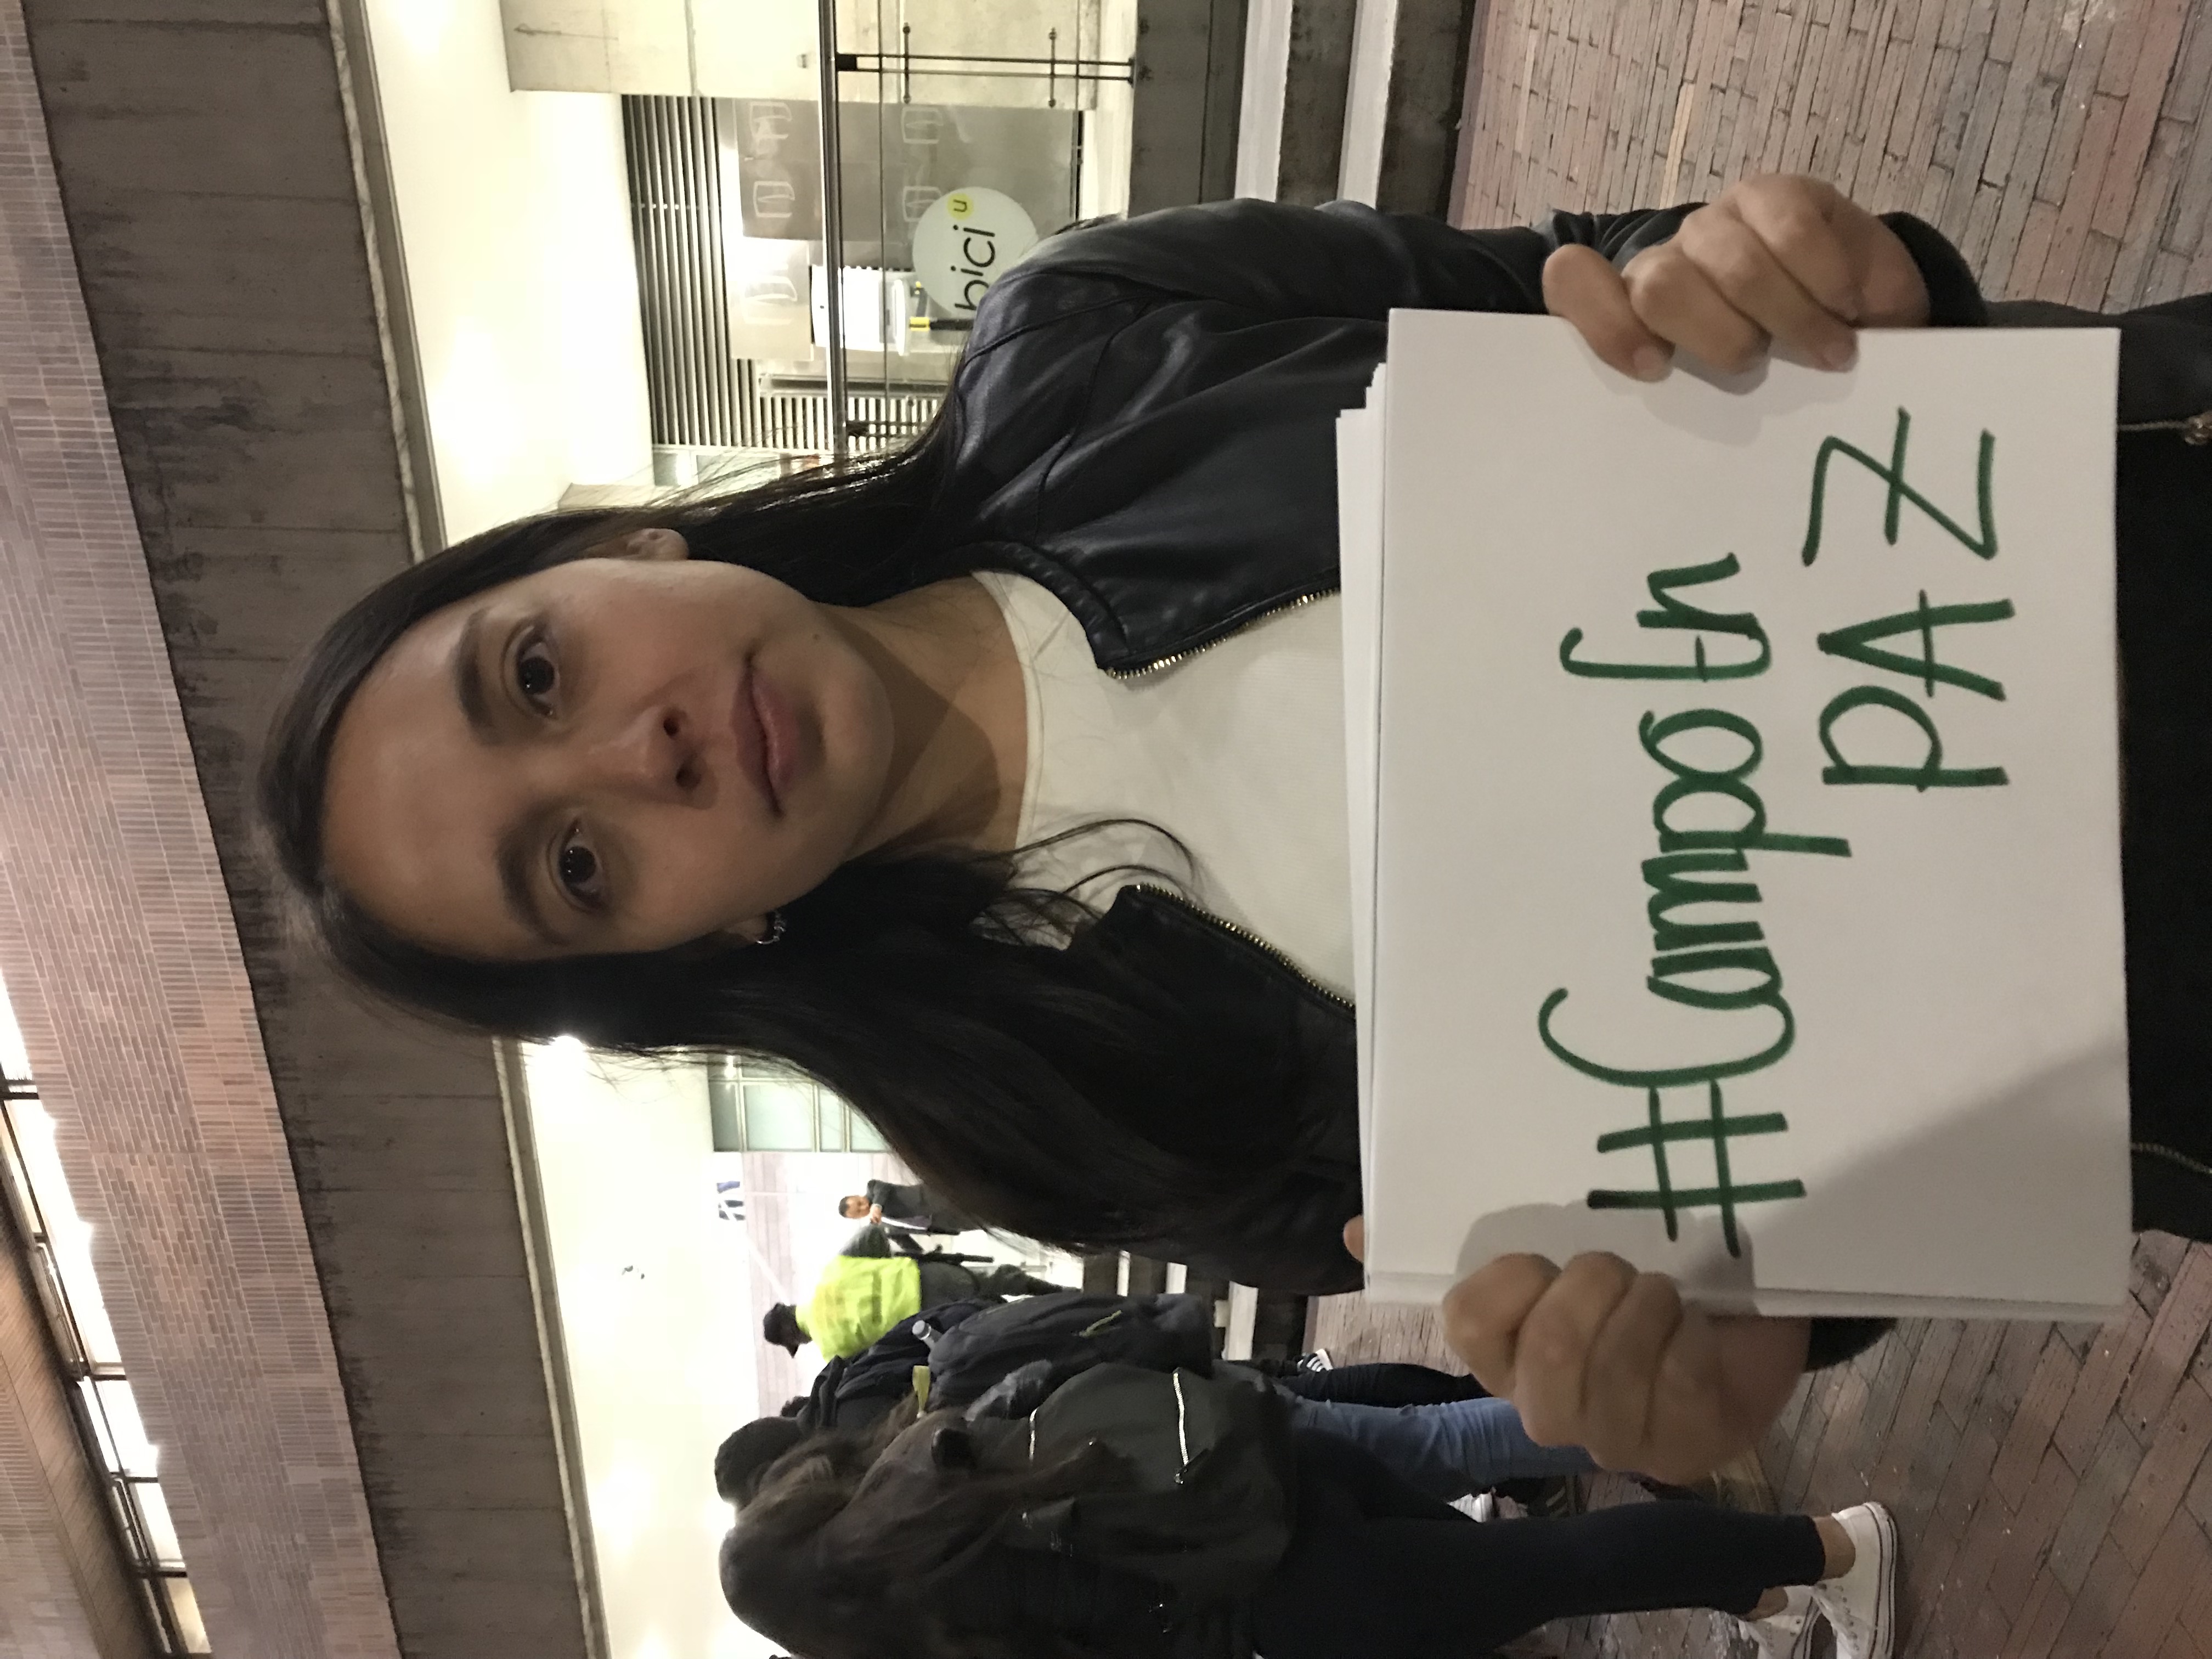 bici u
#CampoEn
PAZ